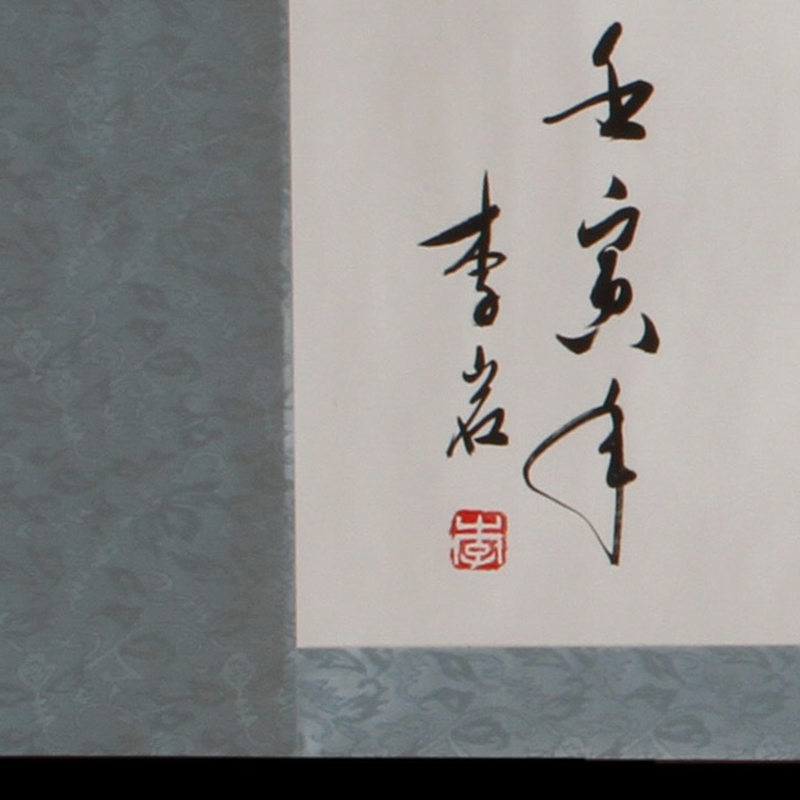 壬寅年
李岩
李